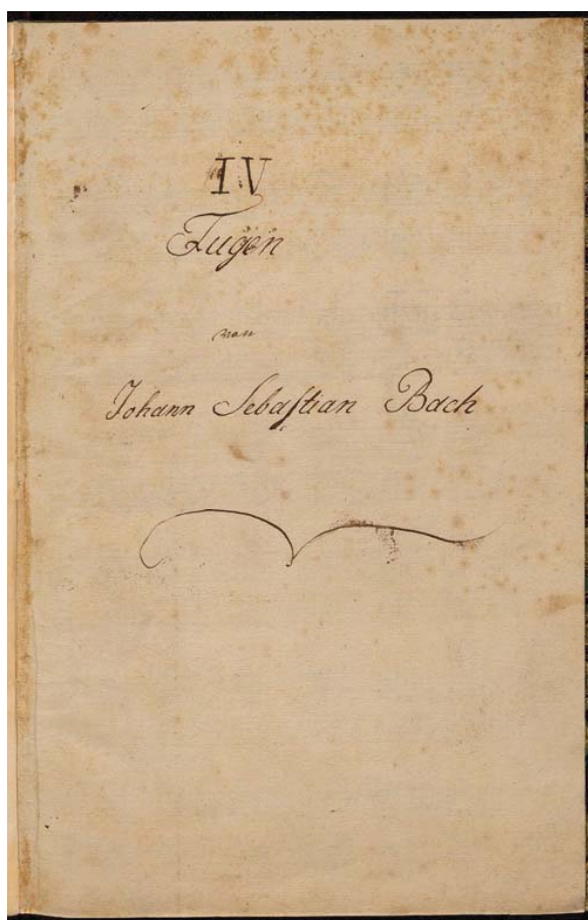 IV
Fugen
von
Johann Sebaſtian Bach